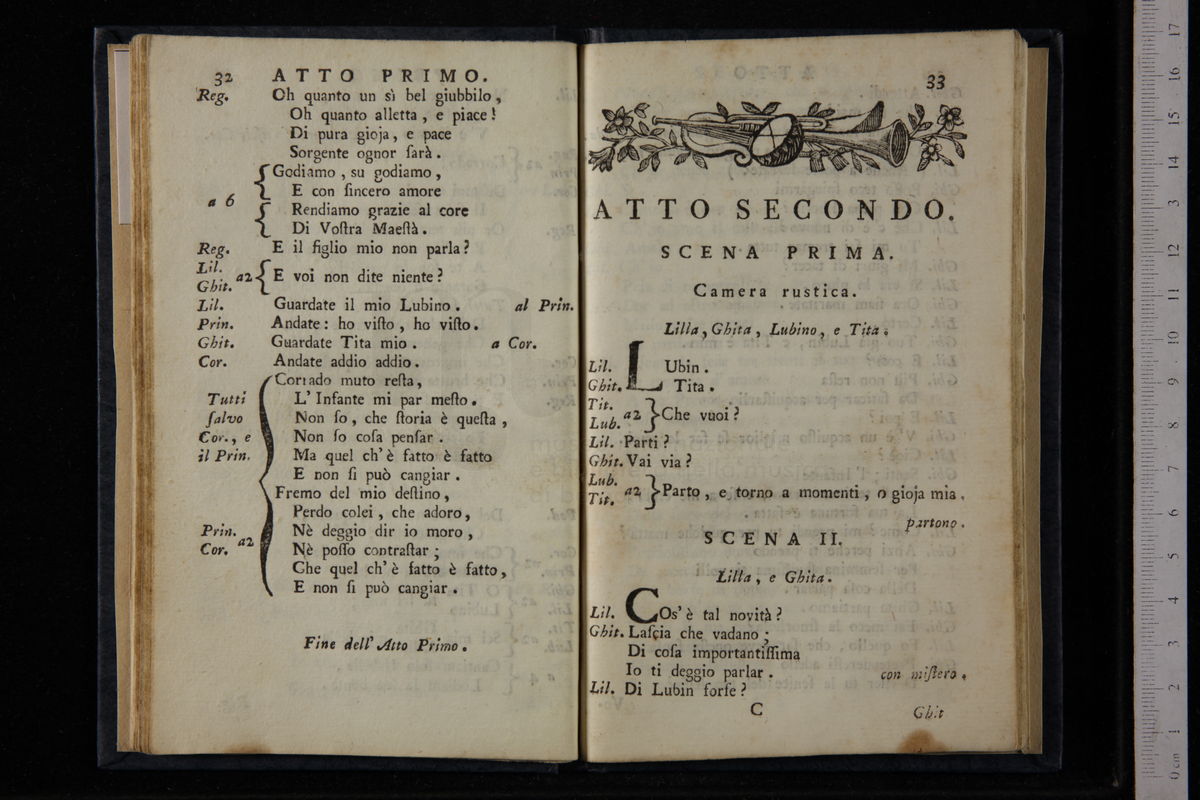 32 ATTO PRIMO.
Reg. Oh quanto un sì bel giubbilo,
Oh quanto alletta, e piace!
Di pura gioja, e pace
Sorgente ognor sarà.
a 6 Godiamo, su godiamo,
E con ſincero amore
Rendiamo grazie al core
Di Voſtra Maeſtà.
Reg. E il figlio mio non parla?
Lil. Ghit. a2 E voi non dite niente?
Lil. Guardate il mio Lubino. al Prin.
Prin. Andate: ho viſto, ho viſto.
Ghit. Guardate Tita mio. a Cor.
Cor. Andate addio addio.
Tutti ſalvo Cor., e il Prin. Corrado muto reſta,
L' Infante mi par meſto.
Non ſo, che ſtoria è queſta,
Non ſo coſa penſar.
Ma quel ch' è fatto è fatto
E non ſi può cangiar.
Prin. Cor. a2 Fremo del mio deſtino,
Perdo colei, che adoro,
Nè deggio dir io moro,
Nè poſſo contraſtar;
Che quel ch' è fatto è fatto,
E non ſi può cangiar.
Fine dell' Atto Primo.
33
ATTO SECONDO.
SCENA PRIMA.
Camera rustica.
Lilla, Ghita, Lubino, e Tita.
Lil. LUbin.
Ghit. Tita.
Tit. Lub. a2 Che vuoi?
Lil. Parti?
Ghit. Vai via?
Lub. Tit. a2 Parto, e torno a momenti, o gioja mia.
partono.
SCENA II.
Lilla, e Ghita.
Lil. COs' è tal novità?
Ghit. Laſcia che vadano;
Di coſa importantiſſima
Io ti deggio parlar. con miſtero.
Lil. Di Lubin forſe?
C Ghit